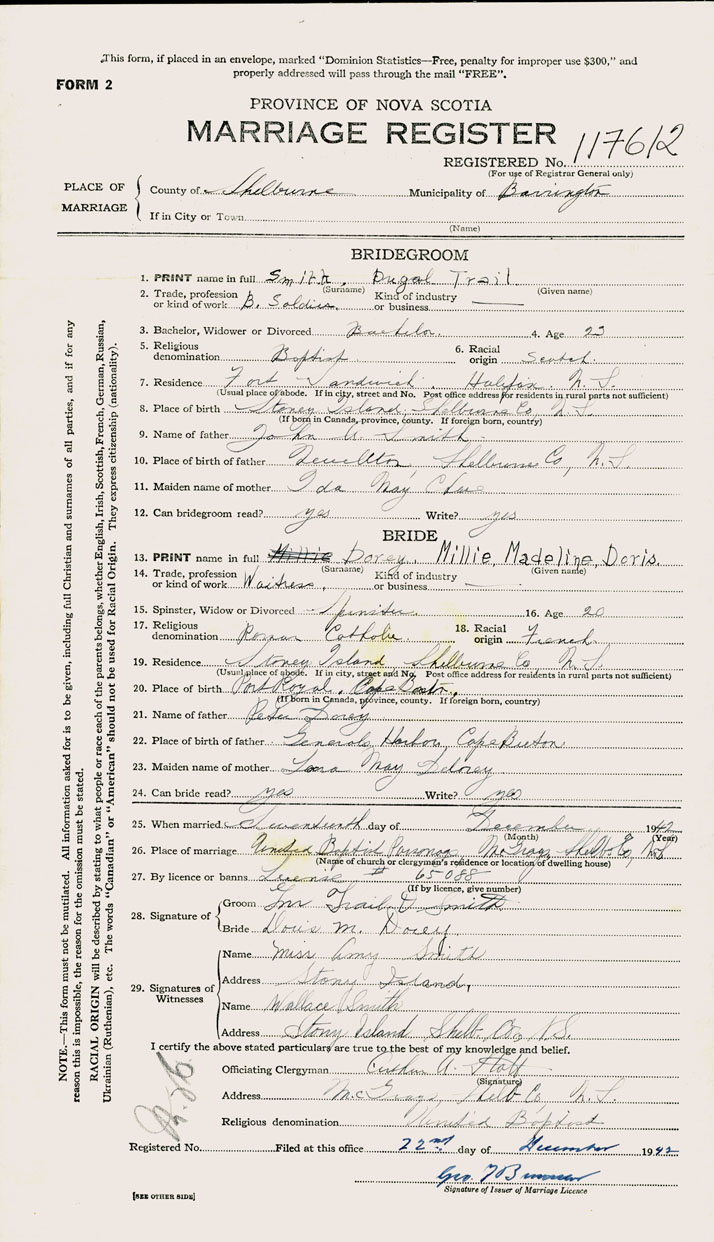 This form, if placed in an envelope, marked "Dominion Statistics—Free, penalty for improper use $300," and
properly addressed will pass through the mail "FREE".
FORM 2
PROVINCE OF NOVA SCOTIA
MARRIAGE REGISTER
REGISTERED No. 117612
(For use of Registrar General only)
PLACE OF MARRIAGE
County of Shelburne Municipality of Barrington
If in City or Town
(Name)
BRIDEGROOM
1. PRINT name in full Smith, Dugal Trail
(Surname) (Given name)
2. Trade, profession or kind of work B. Soldier. Kind of industry or business
3. Bachelor, Widower or Divorced Bachelor. 4. Age 23
5. Religious denomination Baptist 6. Racial origin Scotch.
7. Residence Fort Sandwich, Halifax, N.S.
(Usual place of abode. If in city, street and No. Post office address for residents in rural parts not sufficient)
8. Place of birth Stoney Island, Shelburne Co, N.S.
(If born in Canada, province, county. If foreign born, country)
9. Name of father John A. Smith.
10. Place of birth of father Newellton Shelburne Co, N.S.
11. Maiden name of mother Ida May
12. Can bridegroom read? yes Write? yes
BRIDE
13. PRINT name in full Millie Dorey, Millie, Madeline, Doris.
(Surname) (Given name)
14. Trade, profession or kind of work Waitress, Kind of industry or business
15. Spinster, Widow or Divorced Spinster 16. Age 20
17. Religious denomination Roman Catholic. 18. Racial origin French.
19. Residence Stoney Island, Shelburne Co, N.S.
(Usual place of abode. If in city, street and No. Post office address for residents in rural parts not sufficient)
20. Place of birth Port Royal, Cape
(If born in Canada, province, county. If foreign born, country)
21. Name of father Peter Dorey
22. Place of birth of father Harbor, Cape Breton
23. Maiden name of mother May Delorey
24. Can bride read? yes Write? yes
25. When married Seventeenth day of December 1942
(Month) (Year)
26. Place of marriage United Baptist McGray, Shelb. Co, N.S.
(Name of church or clergyman's residence or location of dwelling house)
27. By licence or banns License # 65088
(If by licence, give number)
28. Signature of
Groom Gnr Trail D Smith
Bride Doris M. Dorey
29. Signatures of Witnesses
Name Miss Amy Smith
Address Stoney Island,
Name Wallace Smith
Address Stony Island Shelb. Co, N.S.
I certify the above stated particulars are true to the best of my knowledge and belief.
Officiating Clergyman A.
(Signature)
Address McGrays, Shelb Co N.S.
Religious denomination United Baptist
Registered No. Filed at this office 22nd day of December 1942
Geo.
Signature of Issuer of Marriage Licence
[SEE OTHER SIDE]
NOTE.—This form must not be mutilated. All information asked for is to be given, including full Christian and surnames of all parties, and if for any
reason this is impossible, the reason for the omission must be stated.
RACIAL ORIGIN will be described by stating to what people or race each of the parents belongs, whether English, Irish, Scottish, French, German, Russian,
Ukrainian (Ruthenian), etc. The words "Canadian" or "American" should not be used for Racial Origin. They express citizenship (nationality).